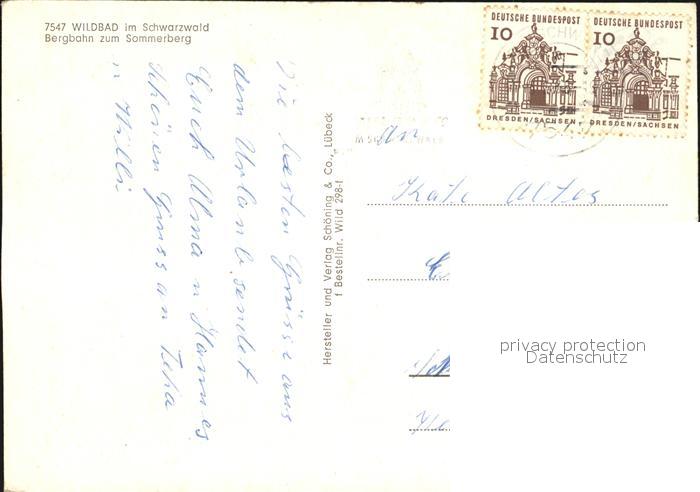 7547 WILDBAD im Schwarzwald
Bergbahn zum Sommerberg
DEUTSCHE BUNDESPOST
10
DRESDEN/SACHSEN
DEUTSCHE BUNDESPOST
10
DRESDEN/SACHSEN
Die besten Grüsse aus
dem Urlaub sendet
Euch Alma u Hannes
Schönen Gruss an
u Willi
Hersteller und Verlag Schöning & Co., Lübeck
f Bestellnr. Wild 298-f
an
Käte
privacy protection
Datenschutz